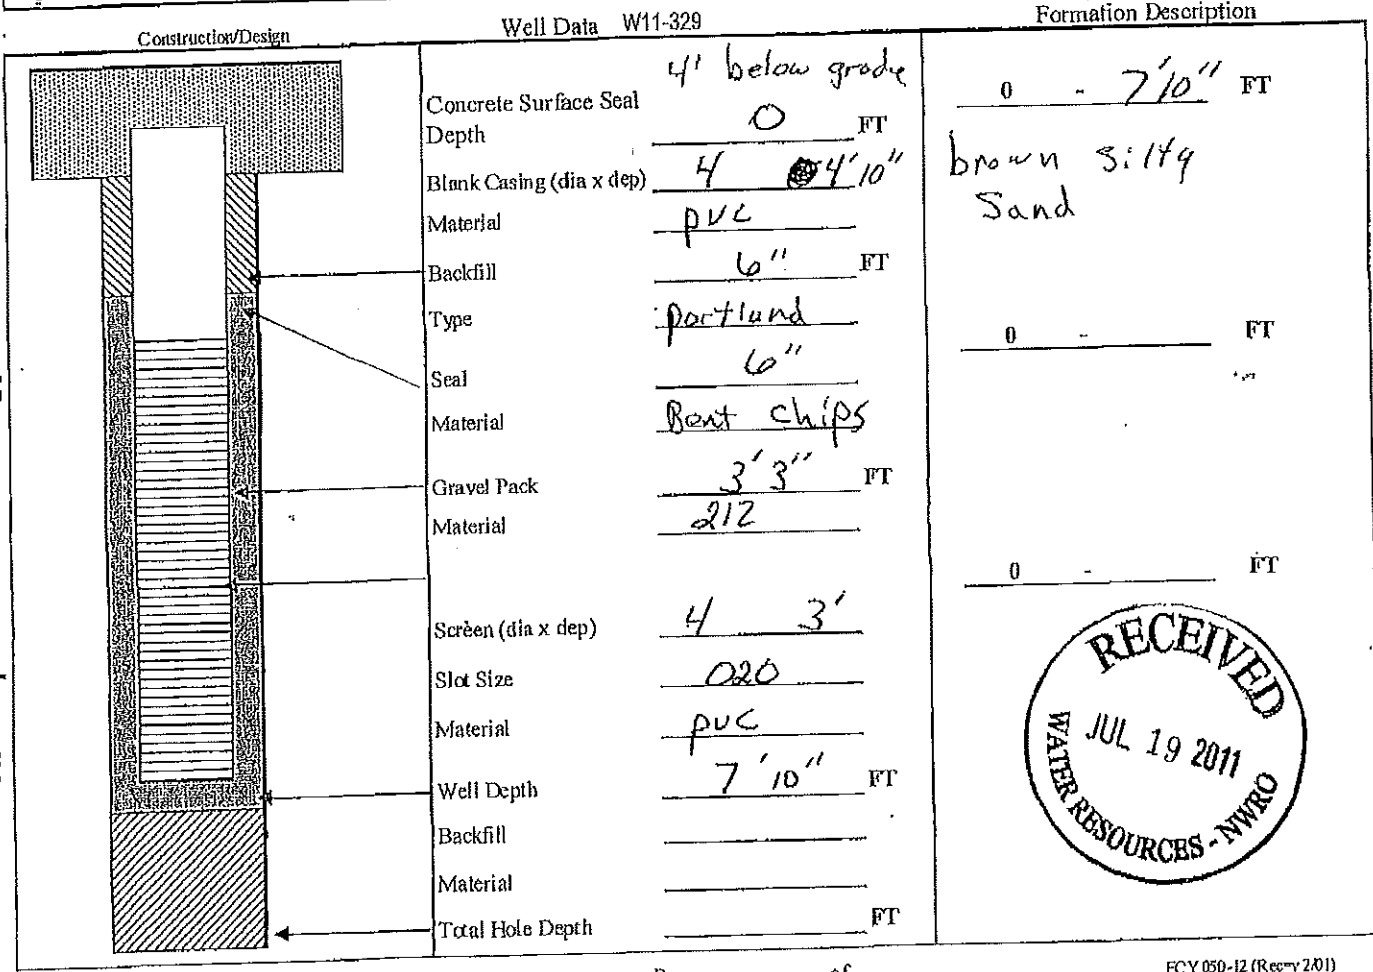 Construction/Design
Well Data W11-329
Formation Description
4' below grade
Concrete Surface Seal
Depth 0 FT
Blank Casing (dia x dep) 4 4'10"
Material pvc
Backfill 6" FT
Type portland
Seal 6"
Material Bent chips
Gravel Pack 3' 3" FT
Material 212
Screen (dia x dep) 4 3'
Slot Size 020
Material pvc
Well Depth 7'10" FT
Backfill
Material
Total Hole Depth FT
0 - 7'10" FT
brown silty
Sand
0 - FT
0 - FT
RECEIVED
JUL 19 2011
WATER RESOURCES - NWRO